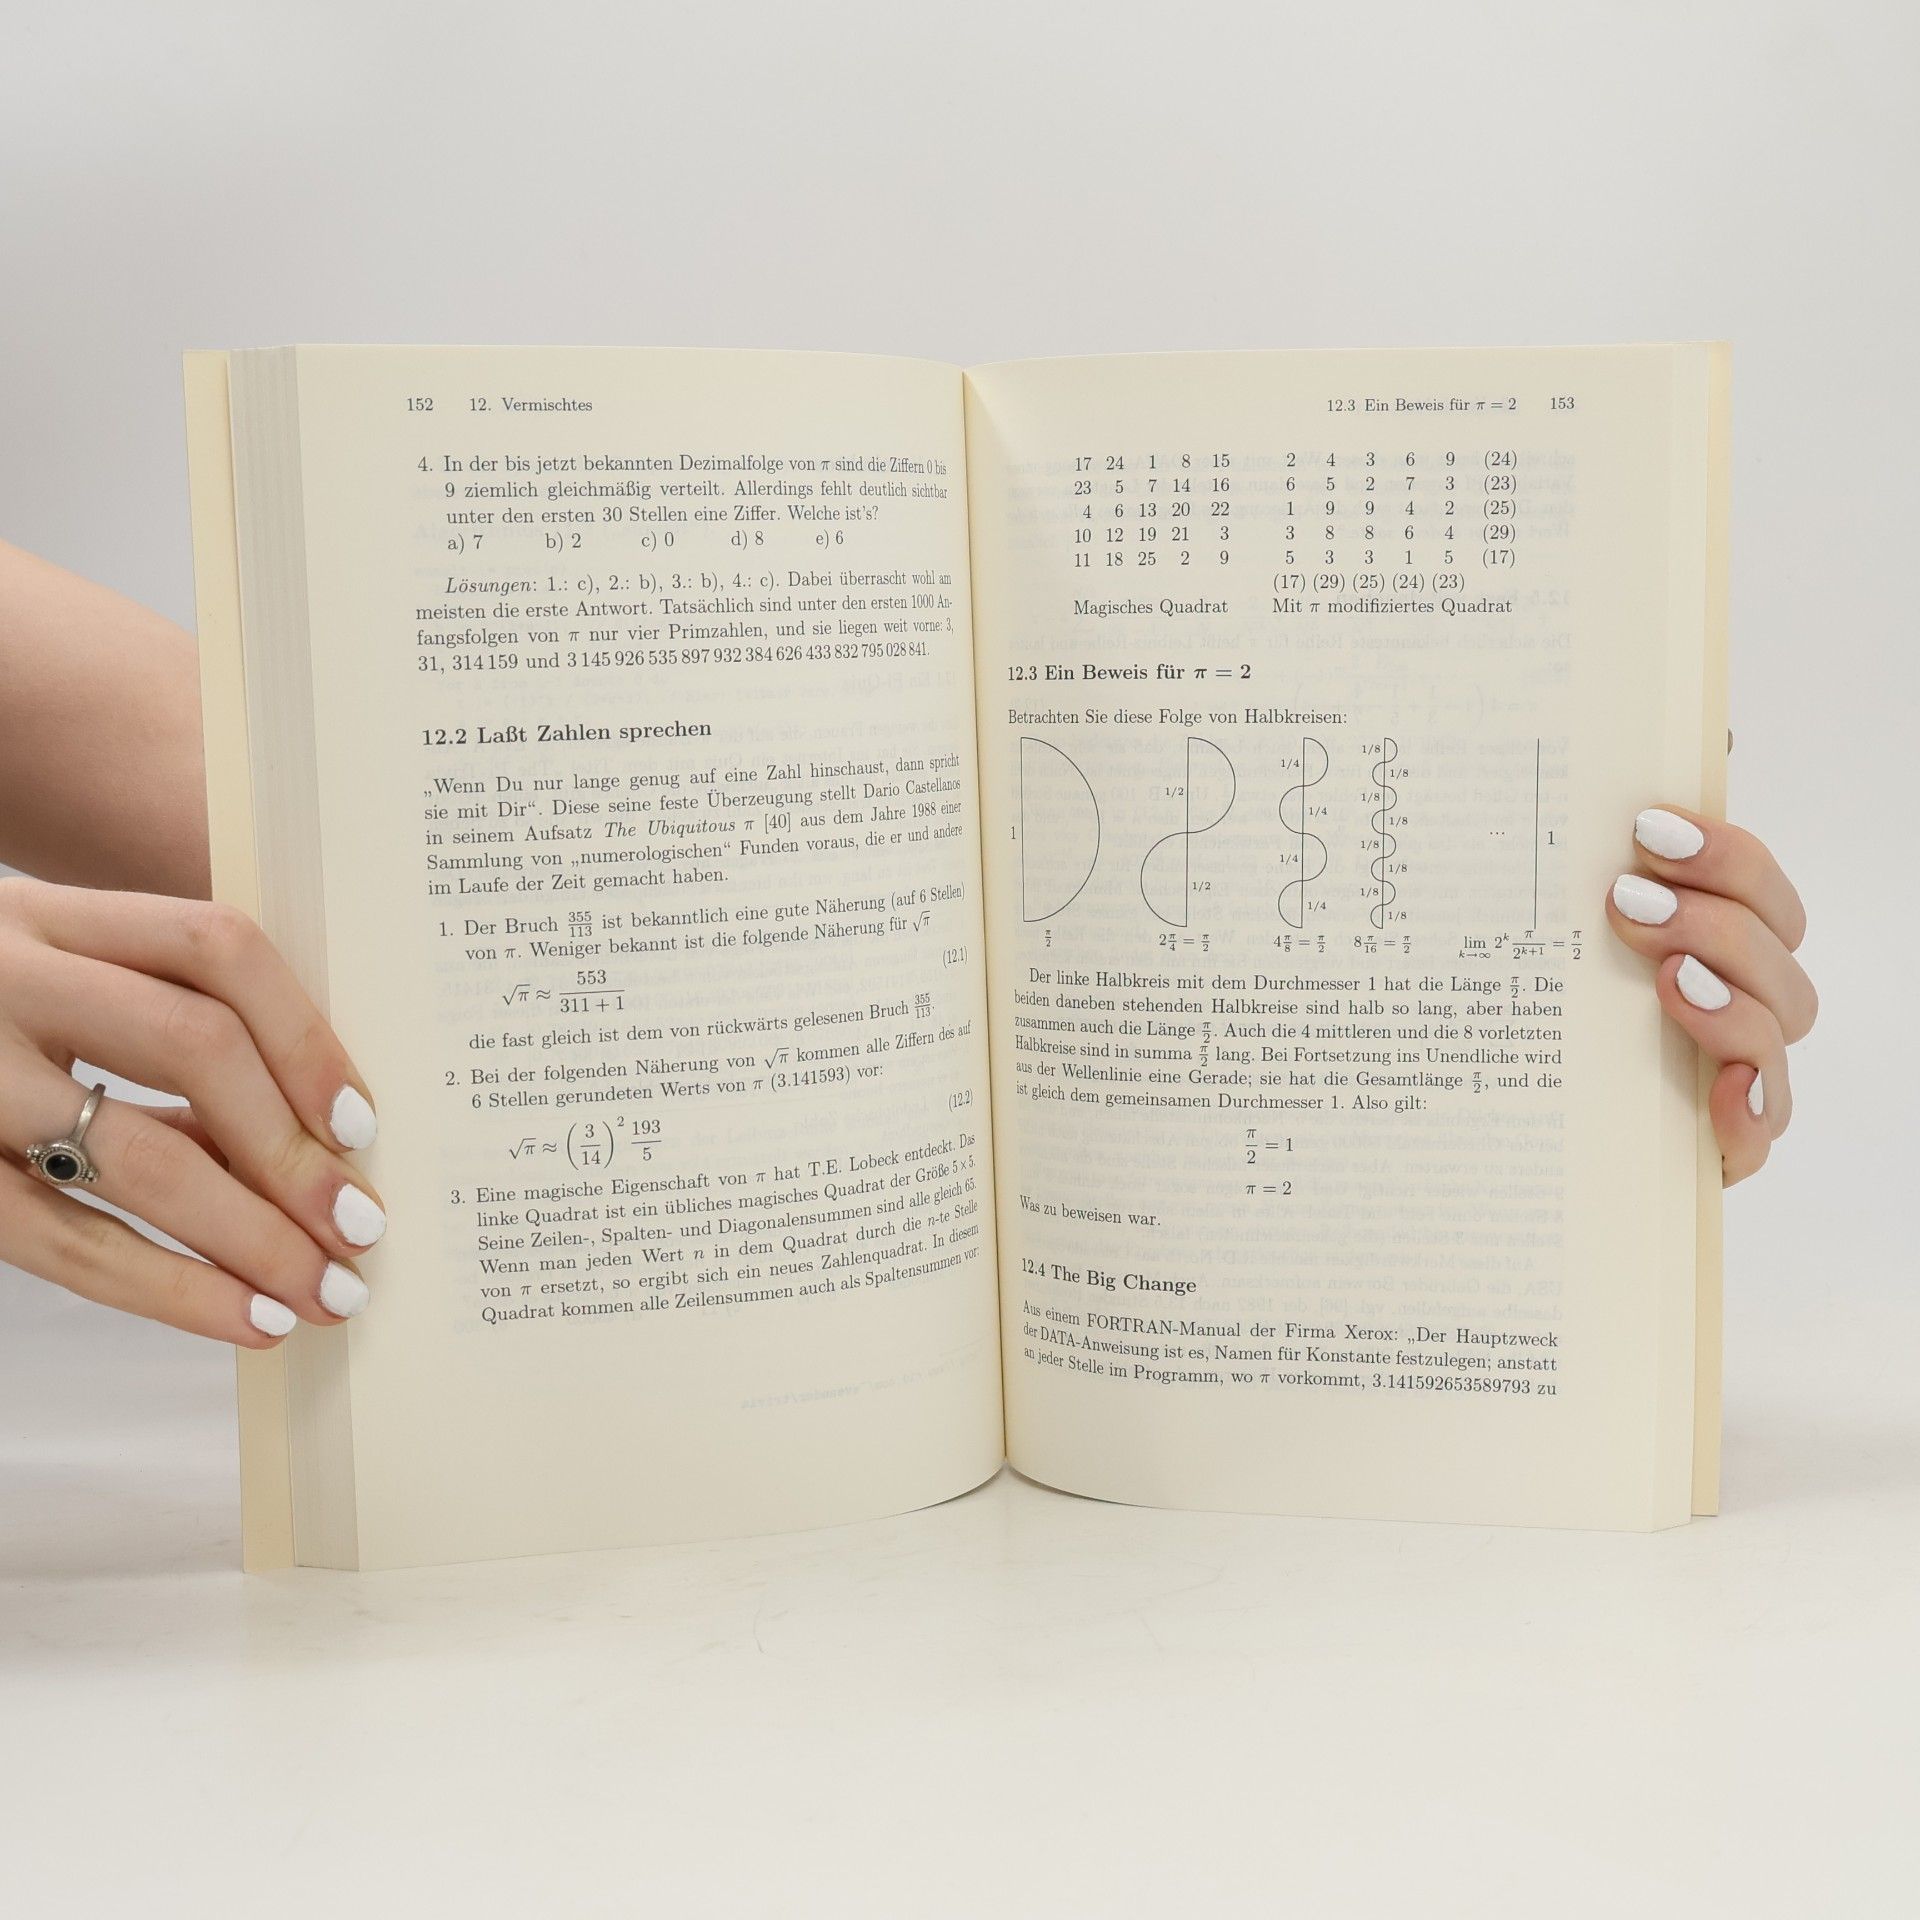 152 12. Vermischtes
4. In der bis jetzt bekannten Dezimalfolge von π sind die Ziffern 0 bis
9 ziemlich gleichmäßig verteilt. Allerdings fehlt deutlich sichtbar
unter den ersten 30 Stellen eine Ziffer. Welche ist's?
a) 7 b) 2 c) 0 d) 8 e) 6
Lösungen: 1.: c), 2.: b), 3.: b), 4.: c). Dabei überrascht wohl am
meisten die erste Antwort. Tatsächlich sind unter den ersten 1000 An-
fangsfolgen von π nur vier Primzahlen, und sie liegen weit vorne: 3,
31, 314 159 und 3 145 926 535 897 932 384 626 433 832 795 028 841.
12.2 Laßt Zahlen sprechen
„Wenn Du nur lange genug auf eine Zahl hinschaust, dann spricht
sie mit Dir“. Diese seine feste Überzeugung stellt Dario Castellanos
in seinem Aufsatz The Ubiquitous π [40] aus dem Jahre 1988 einer
Sammlung von „numerologischen“ Funden voraus, die er und andere
im Laufe der Zeit gemacht haben.
1. Der Bruch 355/113 ist bekanntlich eine gute Näherung (auf 6 Stellen)
von π. Weniger bekannt ist die folgende Näherung für √π
√π ≈ 553/(311 + 1) (12.1)
die fast gleich ist dem von rückwärts gelesenen Bruch 355/113.
2. Bei der folgenden Näherung von √π kommen alle Ziffern des auf
6 Stellen gerundeten Werts von π (3.141593) vor:
√π ≈ (3/14)² 193/5 (12.2)
3. Eine magische Eigenschaft von π hat T.E. Lobeck entdeckt. Das
linke Quadrat ist ein übliches magisches Quadrat der Größe 5 × 5.
Seine Zeilen-, Spalten- und Diagonalensummen sind alle gleich 65.
Wenn man jeden Wert n in dem Quadrat durch die n-te Stelle
von π ersetzt, so ergibt sich ein neues Zahlenquadrat. In diesem
Quadrat kommen alle Zeilensummen auch als Spaltensummen vor:
12.3 Ein Beweis für π = 2 153
17 24 1 8 15 2 4 3 6 9 (24)
23 5 7 14 16 6 5 2 7 3 (23)
4 6 13 20 22 1 9 9 4 2 (25)
10 12 19 21 3 3 8 8 6 4 (29)
11 18 25 2 9 5 3 3 1 5 (17)
(17) (29) (25) (24) (23)
Magisches Quadrat Mit π modifiziertes Quadrat
12.3 Ein Beweis für π = 2
Betrachten Sie diese Folge von Halbkreisen:
1 1/2 1/2 1/4 1/4 1/4 1/4 1/8 1/8 1/8 1/8 1/8 1/8 1/8 1/8 ... 1
π/2 2π/4 = π/2 4π/8 = π/2 8π/16 = π/2 lim k→∞ 2^k π/2^(k+1) = π/2
Der linke Halbkreis mit dem Durchmesser 1 hat die Länge π/2. Die
beiden daneben stehenden Halbkreise sind halb so lang, aber haben
zusammen auch die Länge π/2. Auch die 4 mittleren und die 8 vorletzten
Halbkreise sind in summa π/2 lang. Bei Fortsetzung ins Unendliche wird
aus der Wellenlinie eine Gerade; sie hat die Gesamtlänge π/2, und die
ist gleich dem gemeinsamen Durchmesser 1. Also gilt:
π/2 = 1
π = 2
Was zu beweisen war.
12.4 The Big Change
Aus einem FORTRAN-Manual der Firma Xerox: „Der Hauptzweck
der DATA-Anweisung ist es, Namen für Konstante festzulegen; anstatt
an jeder Stelle im Programm, wo π vorkommt, 3.141592653589793 zu